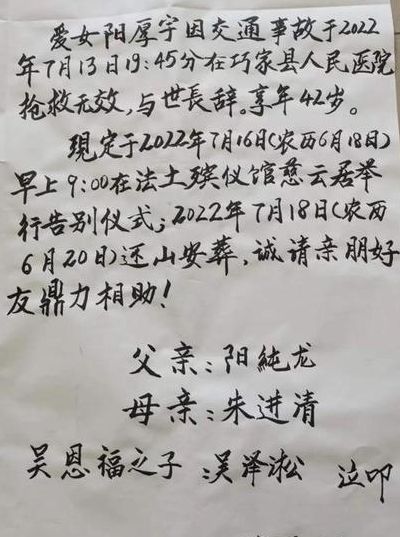 爱女阳厚宇因交通事故于2022
年7月13日19:45分在巧家县人民医院
抢救无效,与世長辞。享年42岁。
現定于2022年7月16日(农历6月18日)
早上9:00在法土殡仪馆慈云居举
行告别仪式;2022年7月18日(农历
6月20日)还山安葬,诚请亲朋好
友鼎力相助!
父亲:阳純龙
母亲:朱进清
吴恩福之子:吴泽淞 泣叩